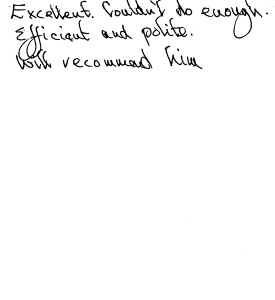 Excellent. Couldn't do enough.
Efficient and polite.
Will recommend him